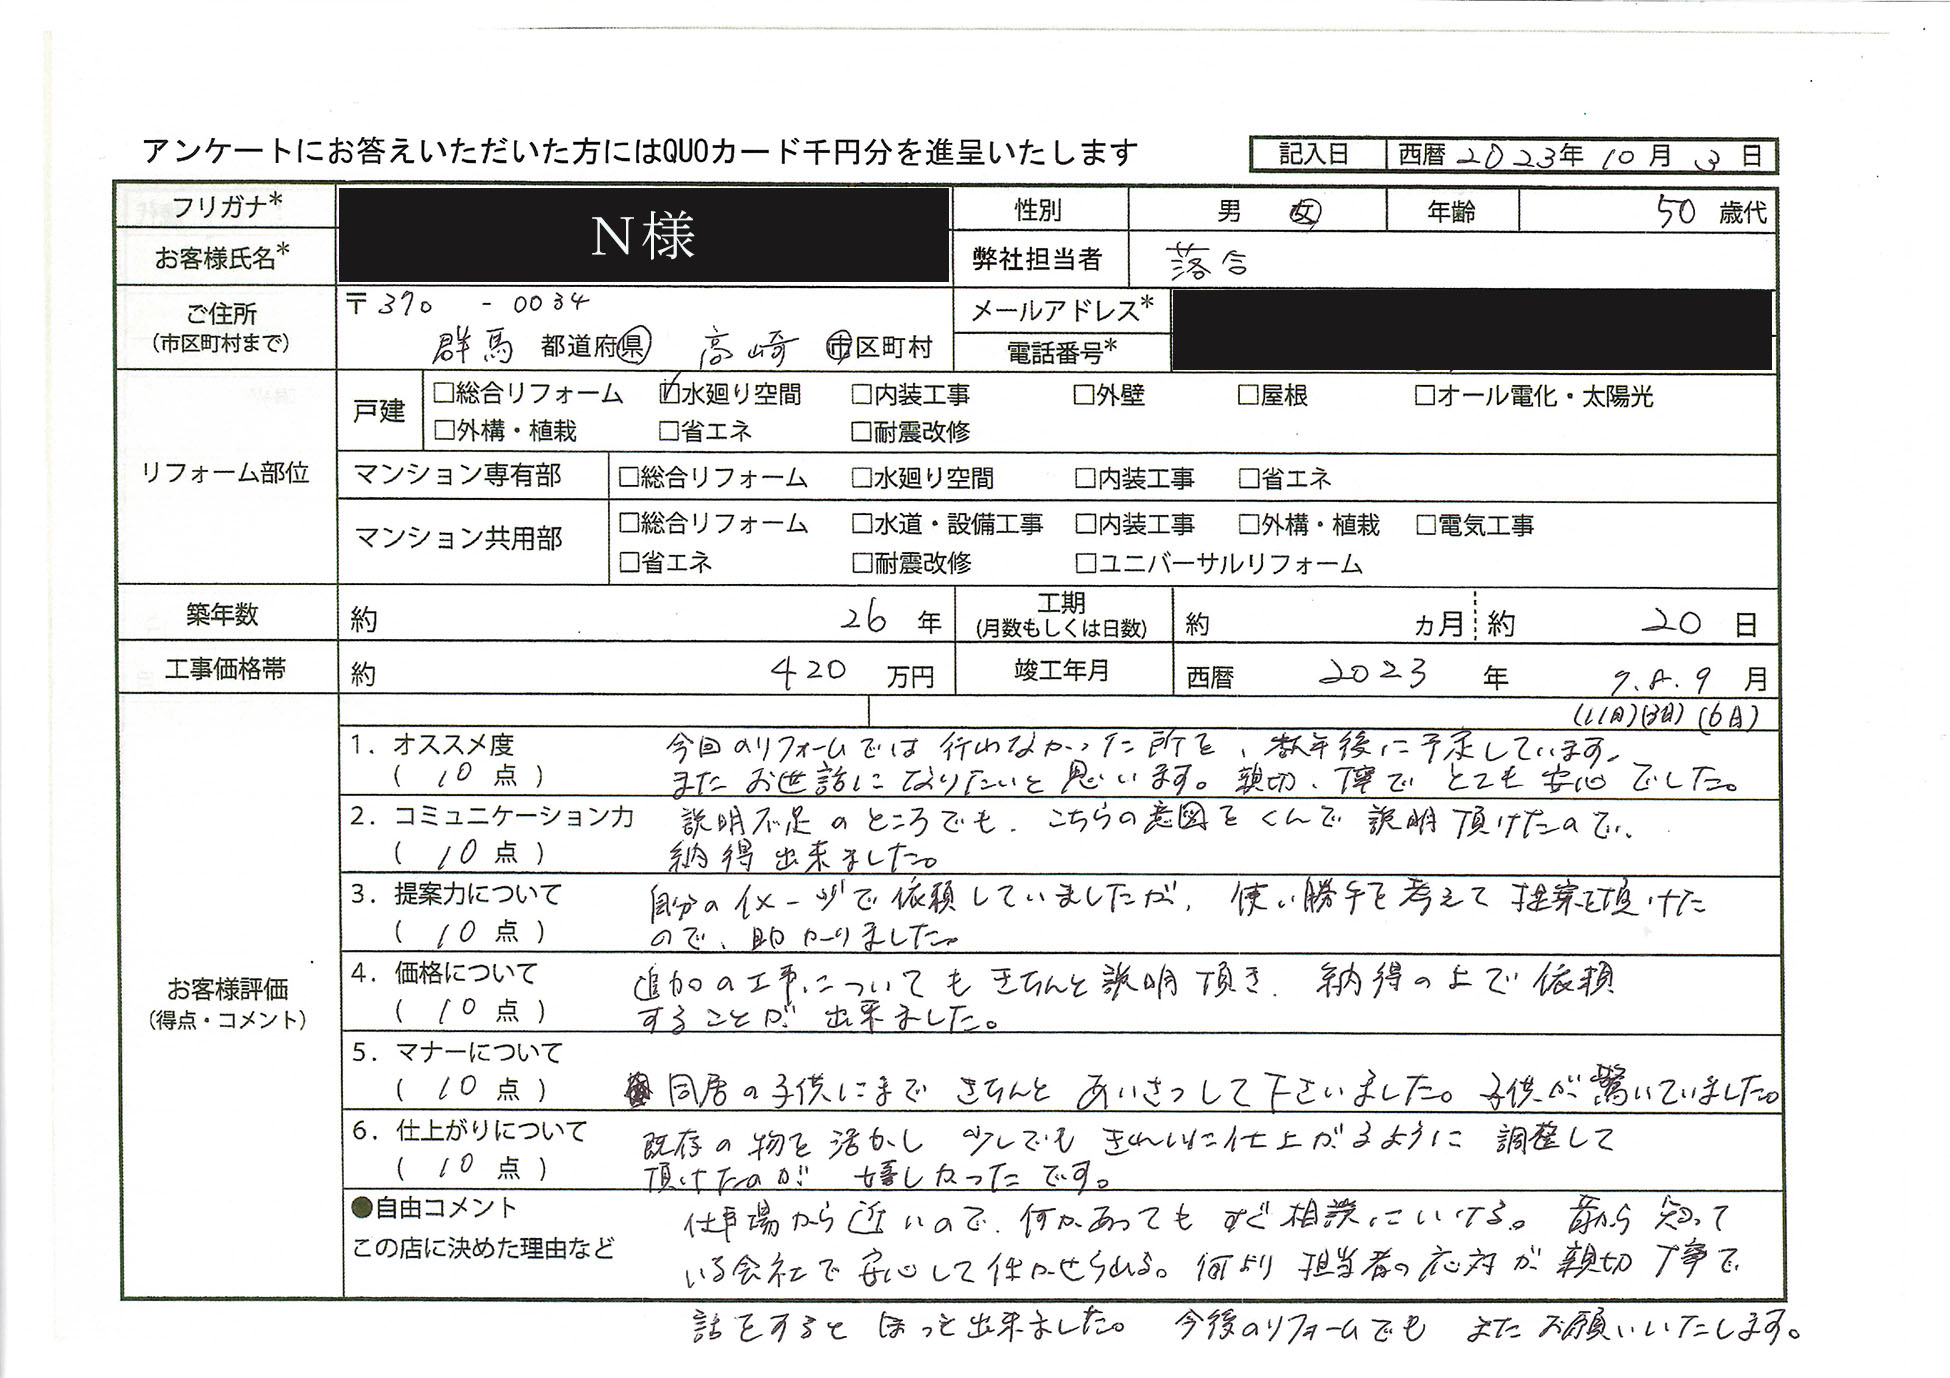 アンケートにお答えいただいた方にはQUOカード千円分を進呈いたします
記入日 西暦 2023年 10月 3日
フリガナ*
お客様氏名*
N様
性別 男 女 年齢 50 歳代
弊社担当者 落合
ご住所
(市区町村まで)
〒370 - 0034
群馬 都道府県 高崎 市区町村
メールアドレス*
電話番号*
リフォーム部位
戸建
□総合リフォーム ☑水廻り空間 □内装工事 □外壁 □屋根 □オール電化・太陽光
□外構・植栽 □省エネ □耐震改修
マンション専有部 □総合リフォーム □水廻り空間 □内装工事 □省エネ
マンション共用部
□総合リフォーム □水道・設備工事 □内装工事 □外構・植栽 □電気工事
□省エネ □耐震改修 □ユニバーサルリフォーム
築年数 約 26 年
工期
(月数もしくは日数) 約 カ月 約 20 日
工事価格帯 約 420 万円
竣工年月 西暦 2023 年 7.8.9 月
(11日)(3日)(6日)
お客様評価
(得点・コメント)
1. オススメ度
( 10 点 )
今回のリフォームでは行わなかった所を、数年後に予定しています。
またお世話になりたいと思います。親切、丁寧でとても安心でした。
2. コミュニケーション力
( 10 点 )
説明不足のところでも、こちらの意図をくんで説明頂けたので、
納得出来ました。
3. 提案力について
( 10 点 )
自分のイメージで依頼していましたが、使い勝手を考えて提案を頂けた
ので、助かりました。
4. 価格について
( 10 点 )
追加の工事についてもきちんと説明頂き、納得の上で依頼
することが出来ました。
5. マナーについて
( 10 点 )
同居の子供にまできちんとあいさつして下さいました。子供が驚いていました。
6. 仕上がりについて
( 10 点 )
既存の物を活かし少しでもきれいに仕上がるように調整して
頂けたのが嬉しかったです。
●自由コメント
この店に決めた理由など
仕事場から近いので、何かあってもすぐ相談にいける。昔から知って
いる会社で安心して任かせられる。何より担当者の応対が親切丁寧で
話をするとほっと出来ました。今後のリフォームでもまたお願いいたします。